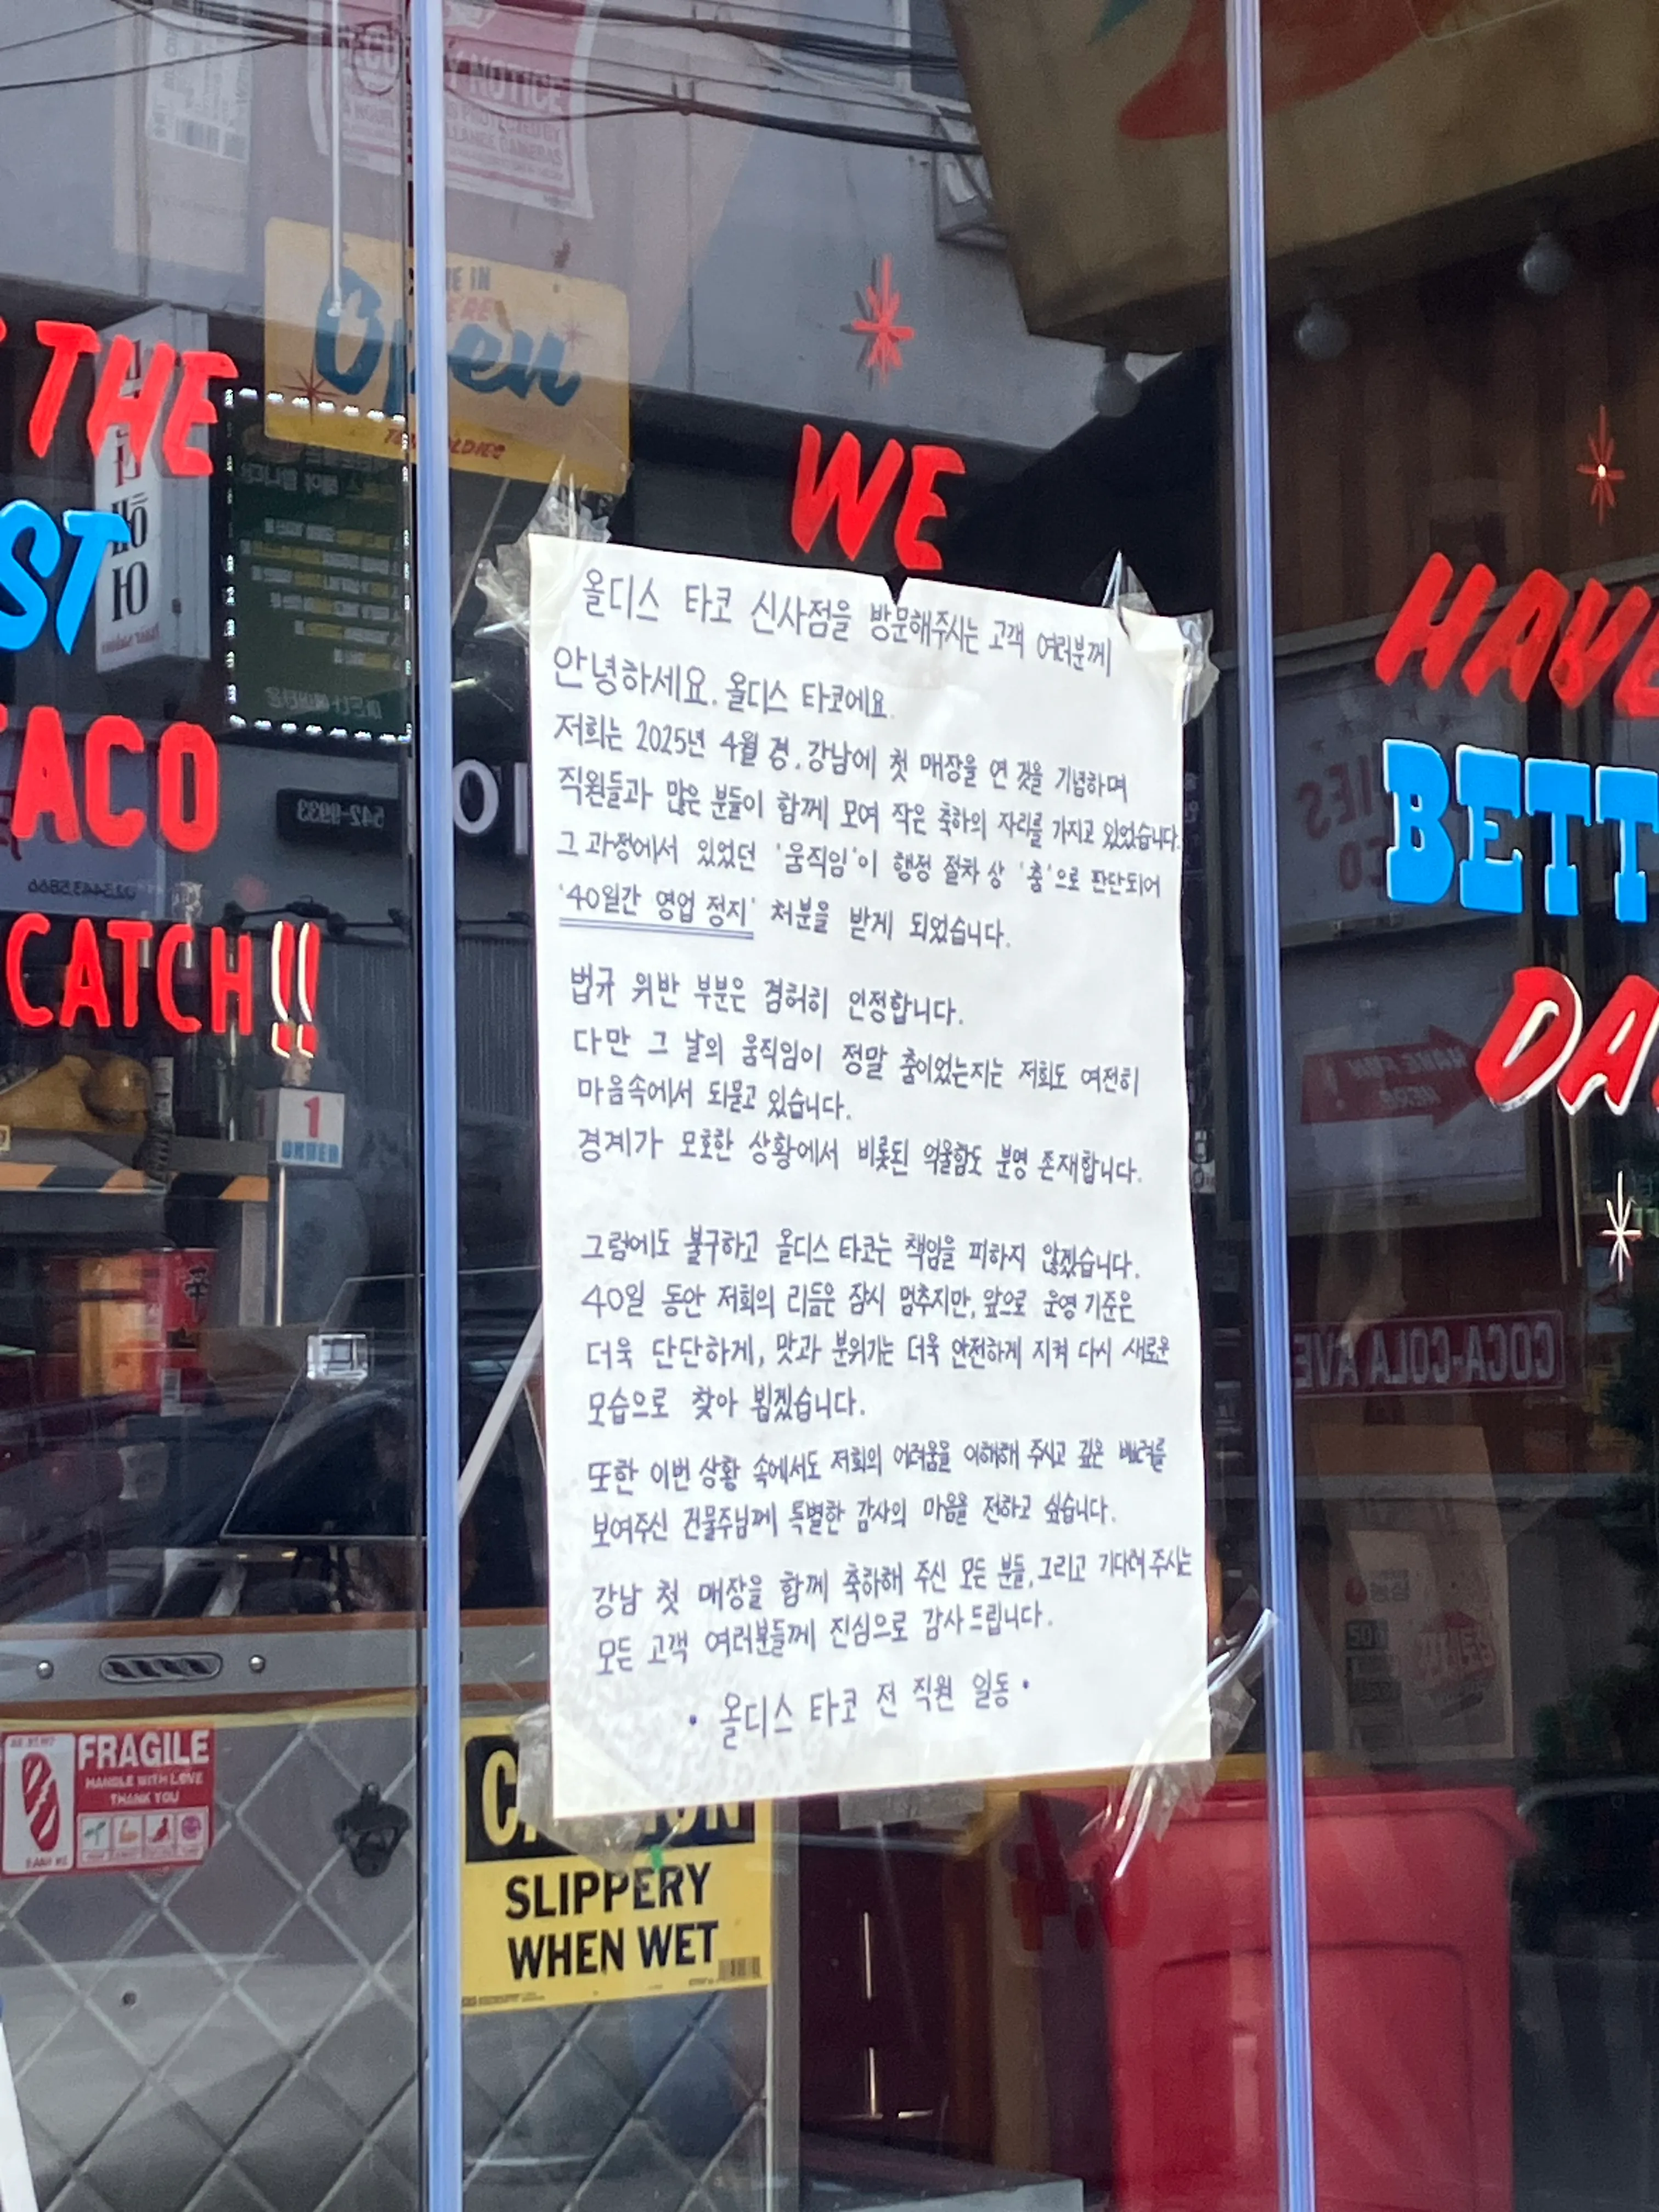 CURITY NOTICE
HERE IN
Open
OLDIES
THE
ST
TACO
CATCH!!
WE
HAVE
BETT
DA
올디스 타코 신사점을 방문해주시는 고객 여러분께
안녕하세요. 올디스 타코에요.
저희는 2025년 4월 경, 강남에 첫 매장을 연 것을 기념하며
직원들과 많은 분들이 함께 모여 작은 축하의 자리를 가지고 있었습니다.
그 과정에서 있었던 '움직임'이 행정 절차 상 '춤'으로 판단되어
'40일간 영업 정지' 처분을 받게 되었습니다.
법규 위반 부분은 겸허히 인정합니다.
다만 그 날의 움직임이 정말 춤이었는지는 저희도 여전히
마음속에서 되묻고 있습니다.
경계가 모호한 상황에서 비롯된 억울함도 분명 존재합니다.
그럼에도 불구하고 올디스 타코는 책임을 피하지 않겠습니다.
40일 동안 저희의 리듬은 잠시 멈추지만, 앞으로 운영 기준은
더욱 단단하게, 맛과 분위기는 더욱 안전하게 지켜 다시 새로운
모습으로 찾아 뵙겠습니다.
또한 이번 상황 속에서도 저희의 어려움을 이해해 주시고 깊은 배려를
보여주신 건물주님께 특별한 감사의 마음을 전하고 싶습니다.
강남 첫 매장을 함께 축하해 주신 모든 분들, 그리고 기다려 주시는
모든 고객 여러분들께 진심으로 감사 드립니다.
• 올디스 타코 전 직원 일동 •
542-9933
1
ORDER
COCA-COLA AVE
FRAGILE
HANDLE WITH LOVE
THANK YOU
SLIPPERY
WHEN WET